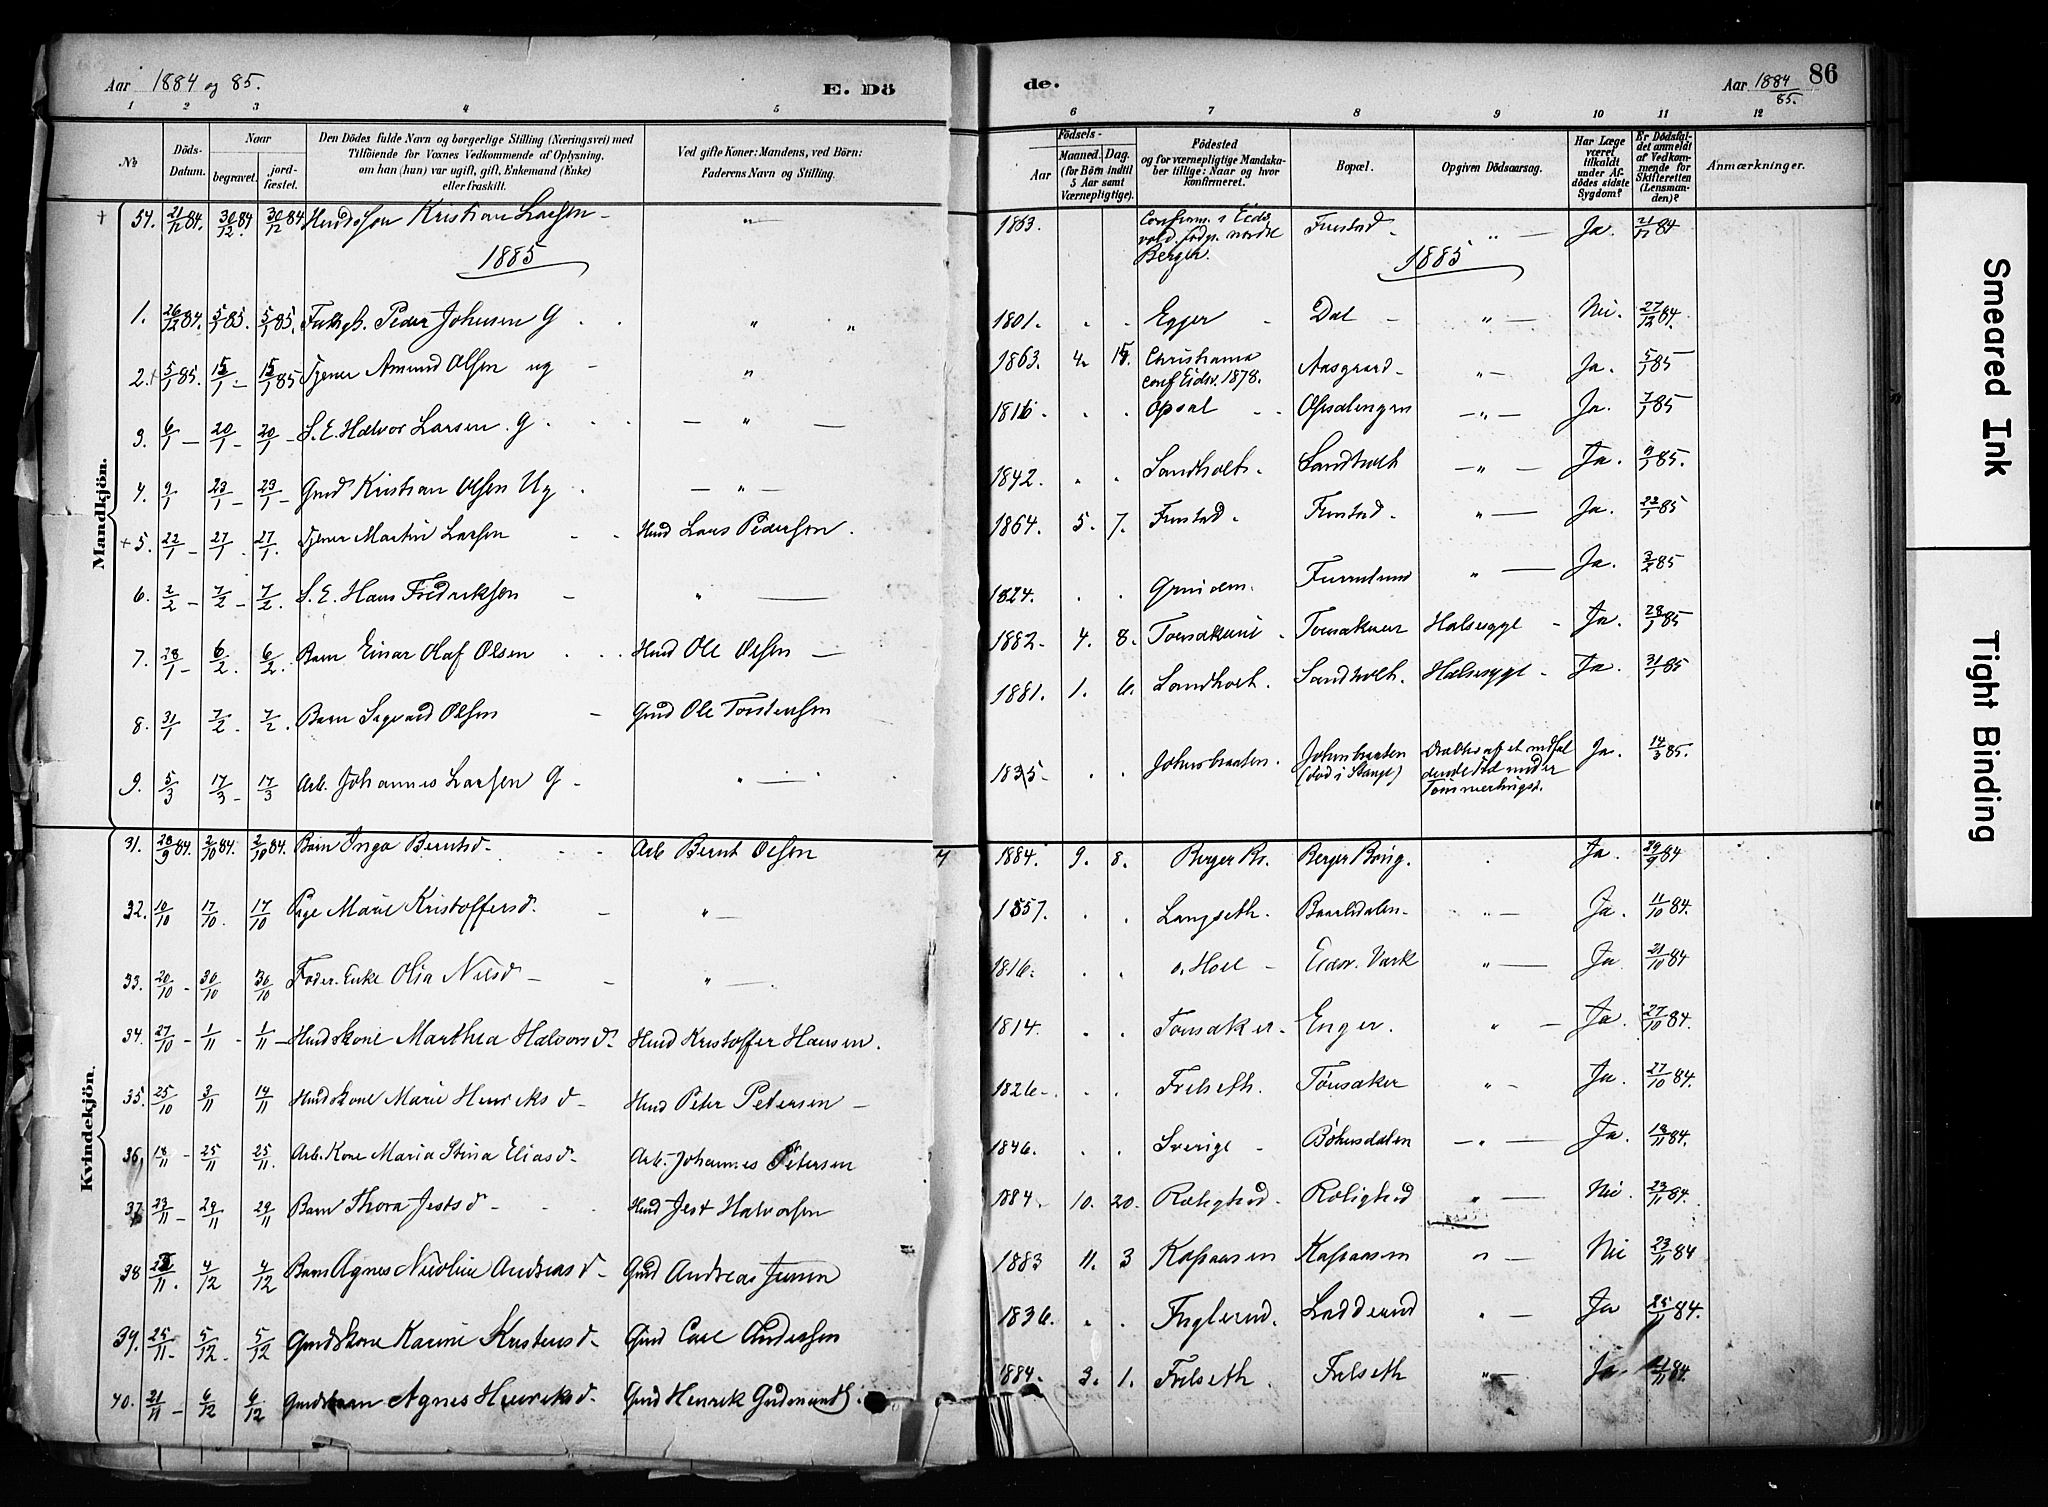 Aar 1884 og 85.
E. Dö
de.
Aar 1884/85.
86
1 2 3 4 5 6 7 8 9 10 11 12
No
Döds-Datum.
Naar
begravet.
jordfæstet.
Den Dödes fulde Navn og borgerlige Stilling (Næringsvei) med
Tilföiende for Voxnes Vedkommende af Oplysning,
om han (hun) var ugift, gift, Enkemand (Enke)
eller fraskilt.
Ved gifte Koner: Mandens, ved Börn:
Faderens Navn og Stilling.
Födsels-
Aar
Maaned. Dag.
(for Börn indtil
5 Aar samt
Værnepligtige).
Födested
og for værnepligtige Mandskaber tillige: Naar og hvor
konfirmeret.
Bopæl.
Opgiven Dödsaarsag.
Har Læge
været
tilkaldt
under Afdödes sidste
Sygdom?
Er Dödsfaldet anmeldt
af Vedkommende for
Skifteretten
(Lensmanden)?
Anmærkninger.
Mandkjön.
54. 21/12 84. 30/12 84 30/12 84 Kristian Larsen - " - 1863. Confirm. i Eidsvold. födt nordre Berger. Finstad - " - Ja. 21/12 84
1885 1885
1. 26/12 84. 5/1 85. 5/1 85. Peder Johnsen G. " " 1801. Egger - Dal - " - Nei. 27/12 84.
2. + 5/1 85. 15/1 - 15/1 85 Tjener Amund Olsen ug - " 1863. 4. 15. Christiania conf Eidsv. 1878. Aasgaard - " - Ja. 5/1 85
3. 6/1 - 20/1 - 20/1 - S. E. Halvor Larsen. G. - " - 1816. Opsal - Opsalengen - " - Ja. 7/1 85
4. 9/1 23/1 - 23/1 - Gmd Kristian Olsen Ug - " - 1842. Sandholt. Sandholt - " - Ja. 9/1 85.
+ 5. 22/1 - 27/1 - 27/1. Tjener Martin Larsen - Hmd Lars Pedersen. 1864. 5. 7. Finstad. Finstad. " - Ja. 22/1 85
6. 2/2 - 7/2 - 7/2. S. E. Hans Fredriksen - " - 1824. " - Ja. 3/2 85
7. 28/1 - 6/2. 6/2. Barn Einar Olaf Olsen Hmd Ole Olsen - 1882. 4. 8. Halsesyge - Ja. 28/1 85
8. 31/1 7/2. 7/2. Barn Sigvard Olsen - Gmd Ole Torstensen 1881. 1. 6. Sandholt. Sandholt. Halsesyge - Ja. 31/1 85
9. 5/3 17/3 - 17/3 Arb. Johannes Larsen G - " - 1835. Johnsbraaten. Johnsbraaten (död i Stange) Ja. 14/3 85.
Kvindekjön.
31. 28/9 84. 2/10 84. 2/10 84. Barn Inga Berntsd - Arb Bernt Olsen 1884. 9. 8. Berger Br. Berger Ja. 29/9 84
32. 10/10 17/10. 17/10 Pige Marie Kristoffersd. - " - 1857. Langseth. Baardsdalen. " - Ja. 11/10 84.
33. 20/10 - 30/10 30/10 Foder. Enke Olia Nilsd - " - 1816. Eidsv. Værk " - Ja. 21/10 84
34. 27/10 - 1/11 - 1/11 - Hmdskone Marthea Halvorsd. Hmd Kristoffer Hansen. 1814. Tönsaker. Enger. " - Ja. 27/10 84.
35. 25/10 3/11 14/11 Hmdskone Marie Henriksd - Hmd Peter Petersen - 1826. Frilseth. Tönsaker " - Ja. 27/10 84.
36. 18/11 - 25/11 25/11. Arb. Kone Maria Stina Eliasd - Arb. Johannes Petersen 1846. Sverige - Böhnsdalen - " - Ja. 18/11 84.
37. 23/11 - 29/11 29/11 Barn Thora Jestsd - Hmd Jest Halvorsen 1884. 10. 20. Rolighed. Rolighed " - Nei. 23/11 84.
38 11. 4/12 4/12 Barn Agnes Nicoline Andreasd - Gmd Andreas Jensen 1883 11. 3 Kaspaasen Kaspaasen " - Nei 23/11 84
39. 25/11 - 5/12 - 5/12 Gmdskone Karine Kristensd - Gmd Carl Andersen 1836. Fuglerud. Ladderud " - Ja 25/11 84.
40. 21/11 - 6/12 6/12 Gmdsbarn Agnes Henriksd. Gmd Henrik 1884. 3. 1. Frilseth. Frilseth " - Ja. 84.
Smeared Ink
Tight Binding